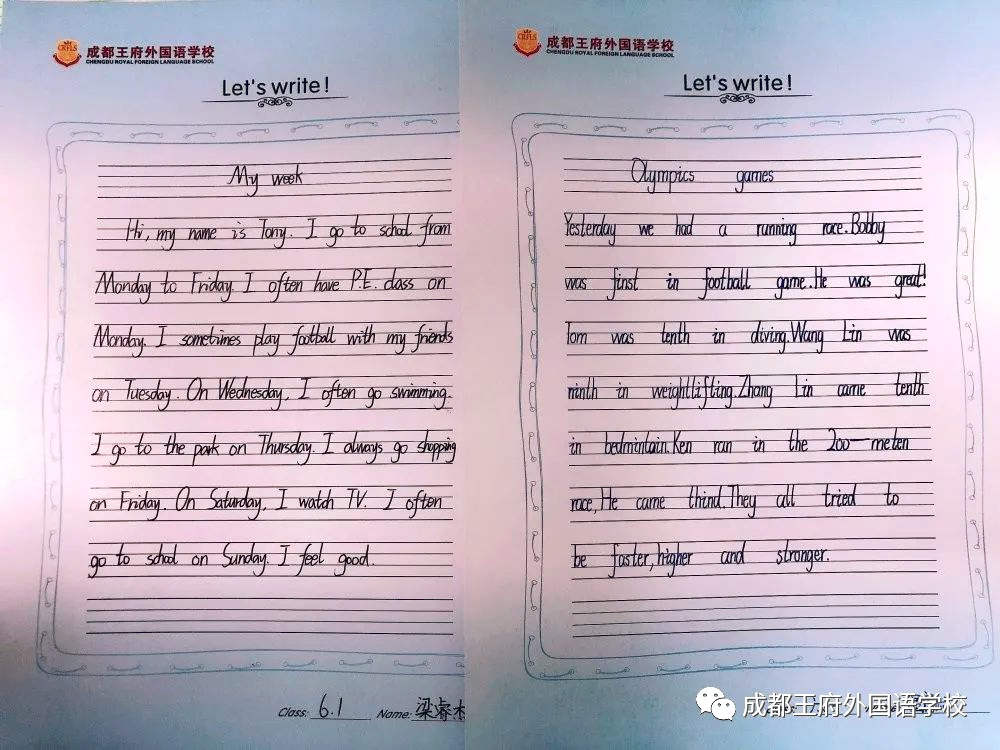 成都王府外国语学校
CHENGDU ROYAL FOREIGN LANGUAGE SCHOOL
Let's write!
My week
Hi, my name is Tony. I go to school from
Monday to Friday. I often have P.E. class on
Monday. I sometimes play football with my friends
on Tuesday. On Wednesday, I often go swimming.
I go to the park on Thursday. I always go shopping
on Friday. On Saturday, I watch TV. I often
go to school on Sunday. I feel good.
Class: 6.1 Name: 梁睿杰
成都王府外国语学校
CHENGDU ROYAL FOREIGN LANGUAGE SCHOOL
Let's write!
Olympics games
Yesterday we had a running race. Bobby
was first in football game. He was great!
Tom was tenth in diving. Wang Lin was
ninth in weightlifting. Zhang Lin came tenth
in bedmintain. Ken ran in the 200-meten
race, He came thind. They all tried to
be faster, higher and stronger.
成都王府外国语学校